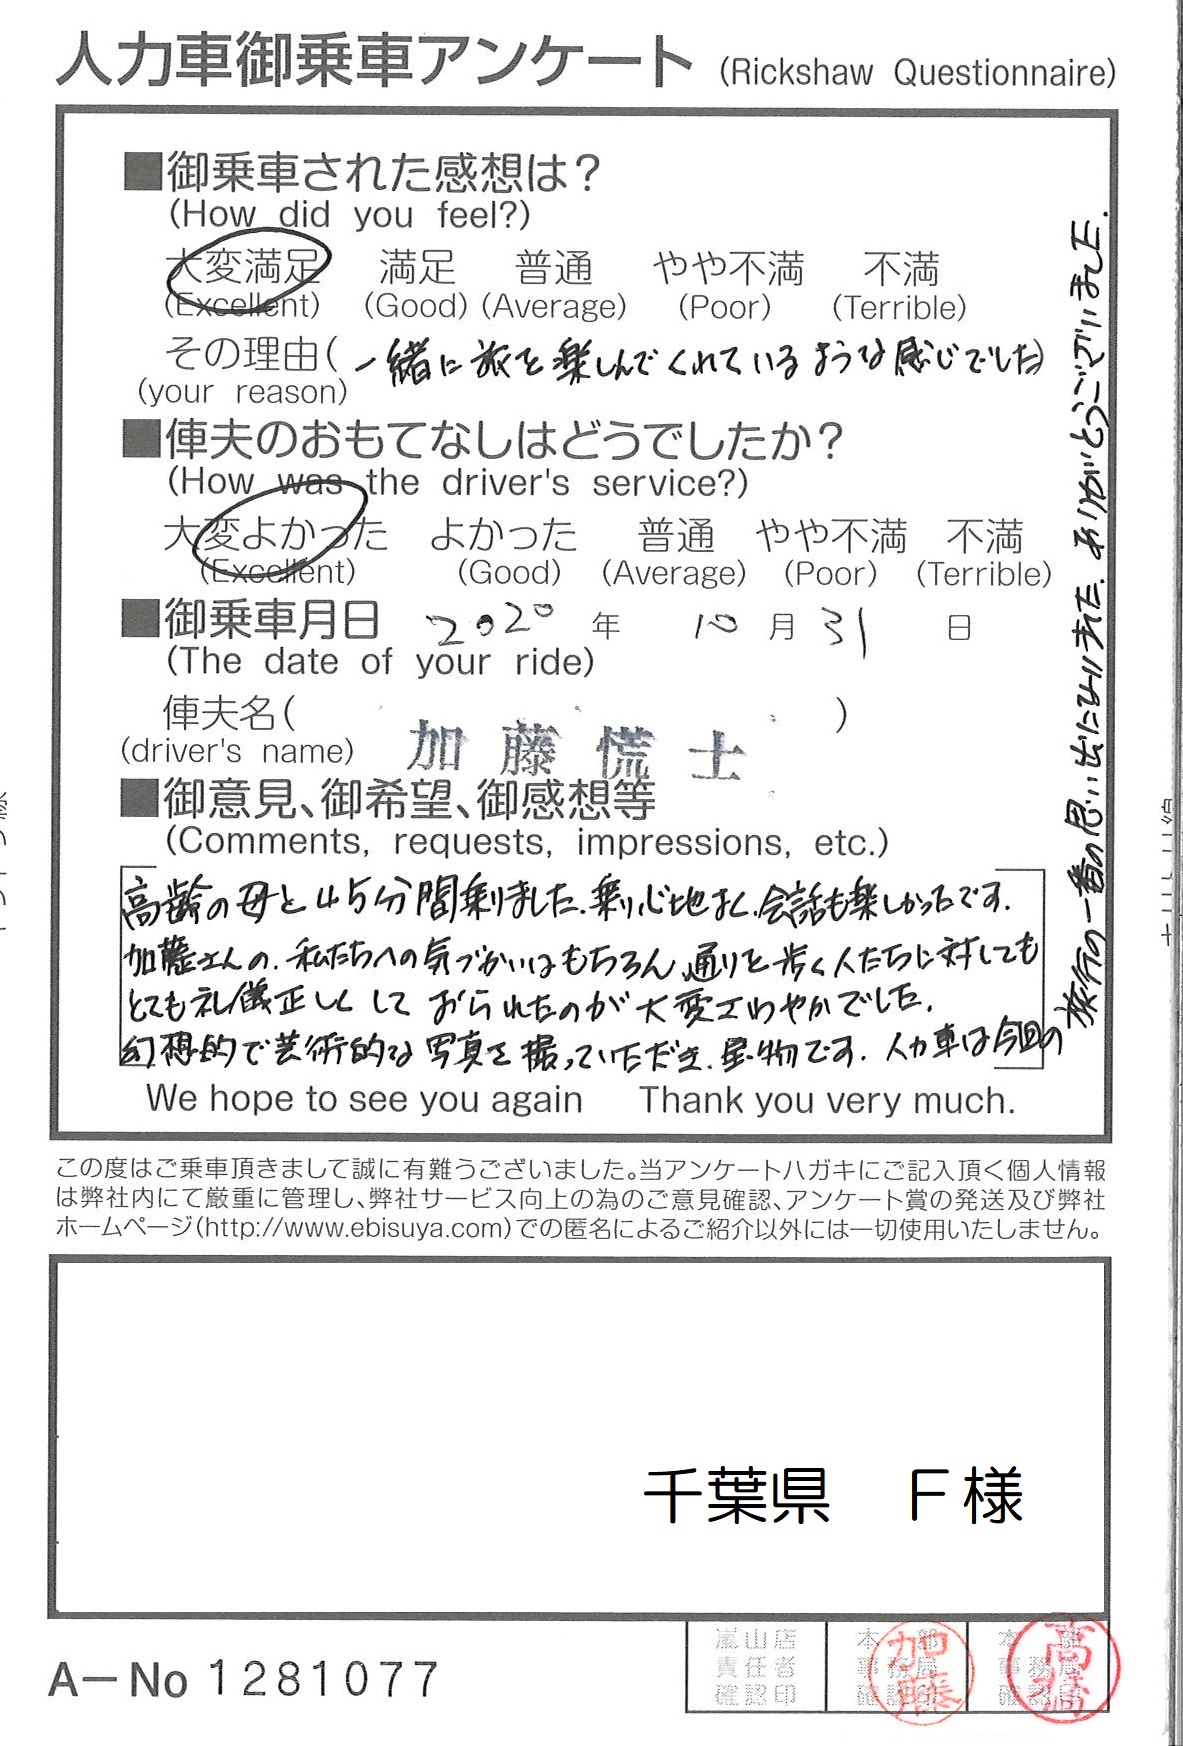 人力車御乗車アンケート (Rickshaw Questionnaire)
■御乗車された感想は?
(How did you feel?)
大変満足 満足 普通 やや不満 不満
(Excellent) (Good) (Average) (Poor) (Terrible)
その理由( 一緒に旅を楽しんでくれているような感じでした)
(your reason)
■俥夫のおもてなしはどうでしたか?
(How was the driver's service?)
大変よかった よかった 普通 やや不満 不満
(Excellent) (Good) (Average) (Poor) (Terrible)
■御乗車月日 2020 年 10 月 31 日
(The date of your ride)
俥夫名( 加藤慌士 )
(driver's name)
■御意見、御希望、御感想等
(Comments, requests, impressions, etc.)
高齢の母と45分間乗りました。乗り心地よく、会話も楽しかったです。
加藤さんの、私たちへの気づかいはもちろん、通りを歩く人たちに対しても
とても礼儀正しくしておられたのが大変さわやかでした。
幻想的で芸術的な写真を撮っていただき、宝物です。人力車は今回の
旅行の一番の思い出になりました。ありがとうございました。
We hope to see you again Thank you very much.
この度はご乗車頂きまして誠に有難うございました。当アンケートハガキにご記入頂く個人情報
は弊社内にて厳重に管理し、弊社サービス向上の為のご意見確認、アンケート賞の発送及び弊社
ホームページ(http://www.ebisuya.com)での匿名によるご紹介以外には一切使用いたしません。
千葉県 F様
A-No 1281077
嵐山店 本部 本部
責任者 事務局 事務局
確認印 確認印 確認印
加藤